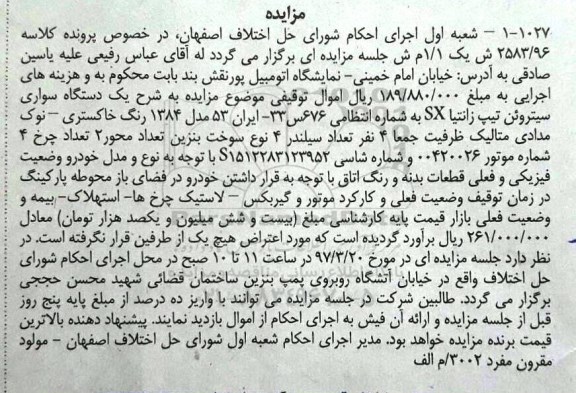 مزایده
۱-۱۰۲۷ – شعبه اول اجرای احکام شورای حل اختلاف اصفهان، در خصوص پرونده کلاسه
۲۵۸۳/۹۶ ش یک ۱/۱م ش جلسه مزایده ای برگزار می گردد له آقای عباس رفیعی علیه یاسین
صادقی به آدرس: خیابان امام خمینی- نمایشگاه اتومبیل پورنقش بند بابت محکوم به و هزینه های
اجرایی به مبلغ ۱۸۹/۸۸۰/۰۰۰ ریال اموال توقیفی موضوع مزایده به شرح یک دستگاه سواری
سیتروئن تیپ زانتیا SX به شماره انتظامی ۶۷۶س۳۳- ایران ۵۳ مدل ۱۳۸۴ رنگ خاکستری – نوک
مدادی متالیک ظرفیت جمعا ۴ نفر تعداد سیلندر ۴ نوع سوخت بنزین تعداد محور۲ تعداد چرخ ۴
شماره موتور ۰۰۴۲۰۰۲۶ و شماره شاسی S۱۵۱۲۲۸۳۱۲۳۹۵۲ با توجه به نوع و مدل خودرو وضعیت
فیزیکی و فعلی قطعات بدنه و رنگ اتاق با توجه به قرار داشتن خودرو در فضای باز محوطه پارکینگ
در زمان توقیف وضعیت فعلی و کارکرد موتور و گیربکس – لاستیک چرخ ها- استهلاک- بیمه و
وضعیت فعلی بازار قیمت پایه کارشناسی مبلغ (بیست و شش میلیون و یکصد هزار تومان) معادل
۲۶۱/۰۰۰/۰۰۰ ریال برآورد گردیده است که مورد اعتراض هیچ یک از طرفین قرار نگرفته است. در
نظر دارد جلسه مزایده ای در مورخ ۹۷/۳/۲۰ در ساعت ۱۱ تا ۱۰ صبح در محل اجرای احکام شورای
حل اختلاف واقع در خیابان آتشگاه روبروی پمپ بنزین ساختمان قضائی شهید محسن حججی
برگزار می گردد. طالبین شرکت در جلسه مزایده می توانند با واریز ده درصد از مبلغ پایه پنج روز
قبل از جلسه مزایده و ارائه آن فیش به اجرای احکام از اموال بازدید نمایند. پیشنهاد دهنده بالاترین
قیمت برنده مزایده خواهد بود. مدیر اجرای احکام شعبه اول شورای حل اختلاف اصفهان – مولود
مقرون مفرد ۳۰۰۲/م الف